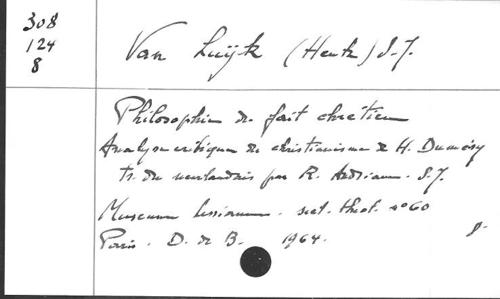 308
124
8
Van Luijk (Henk) S.J.
Philosophie du fait chrétien
Analyse critique du christianisme de H. Duméry
tr. du néerlandais par R. Adriaen. S.J.
Museum lessianum. sect. théol. no 60
Paris. D. de B. 1964.